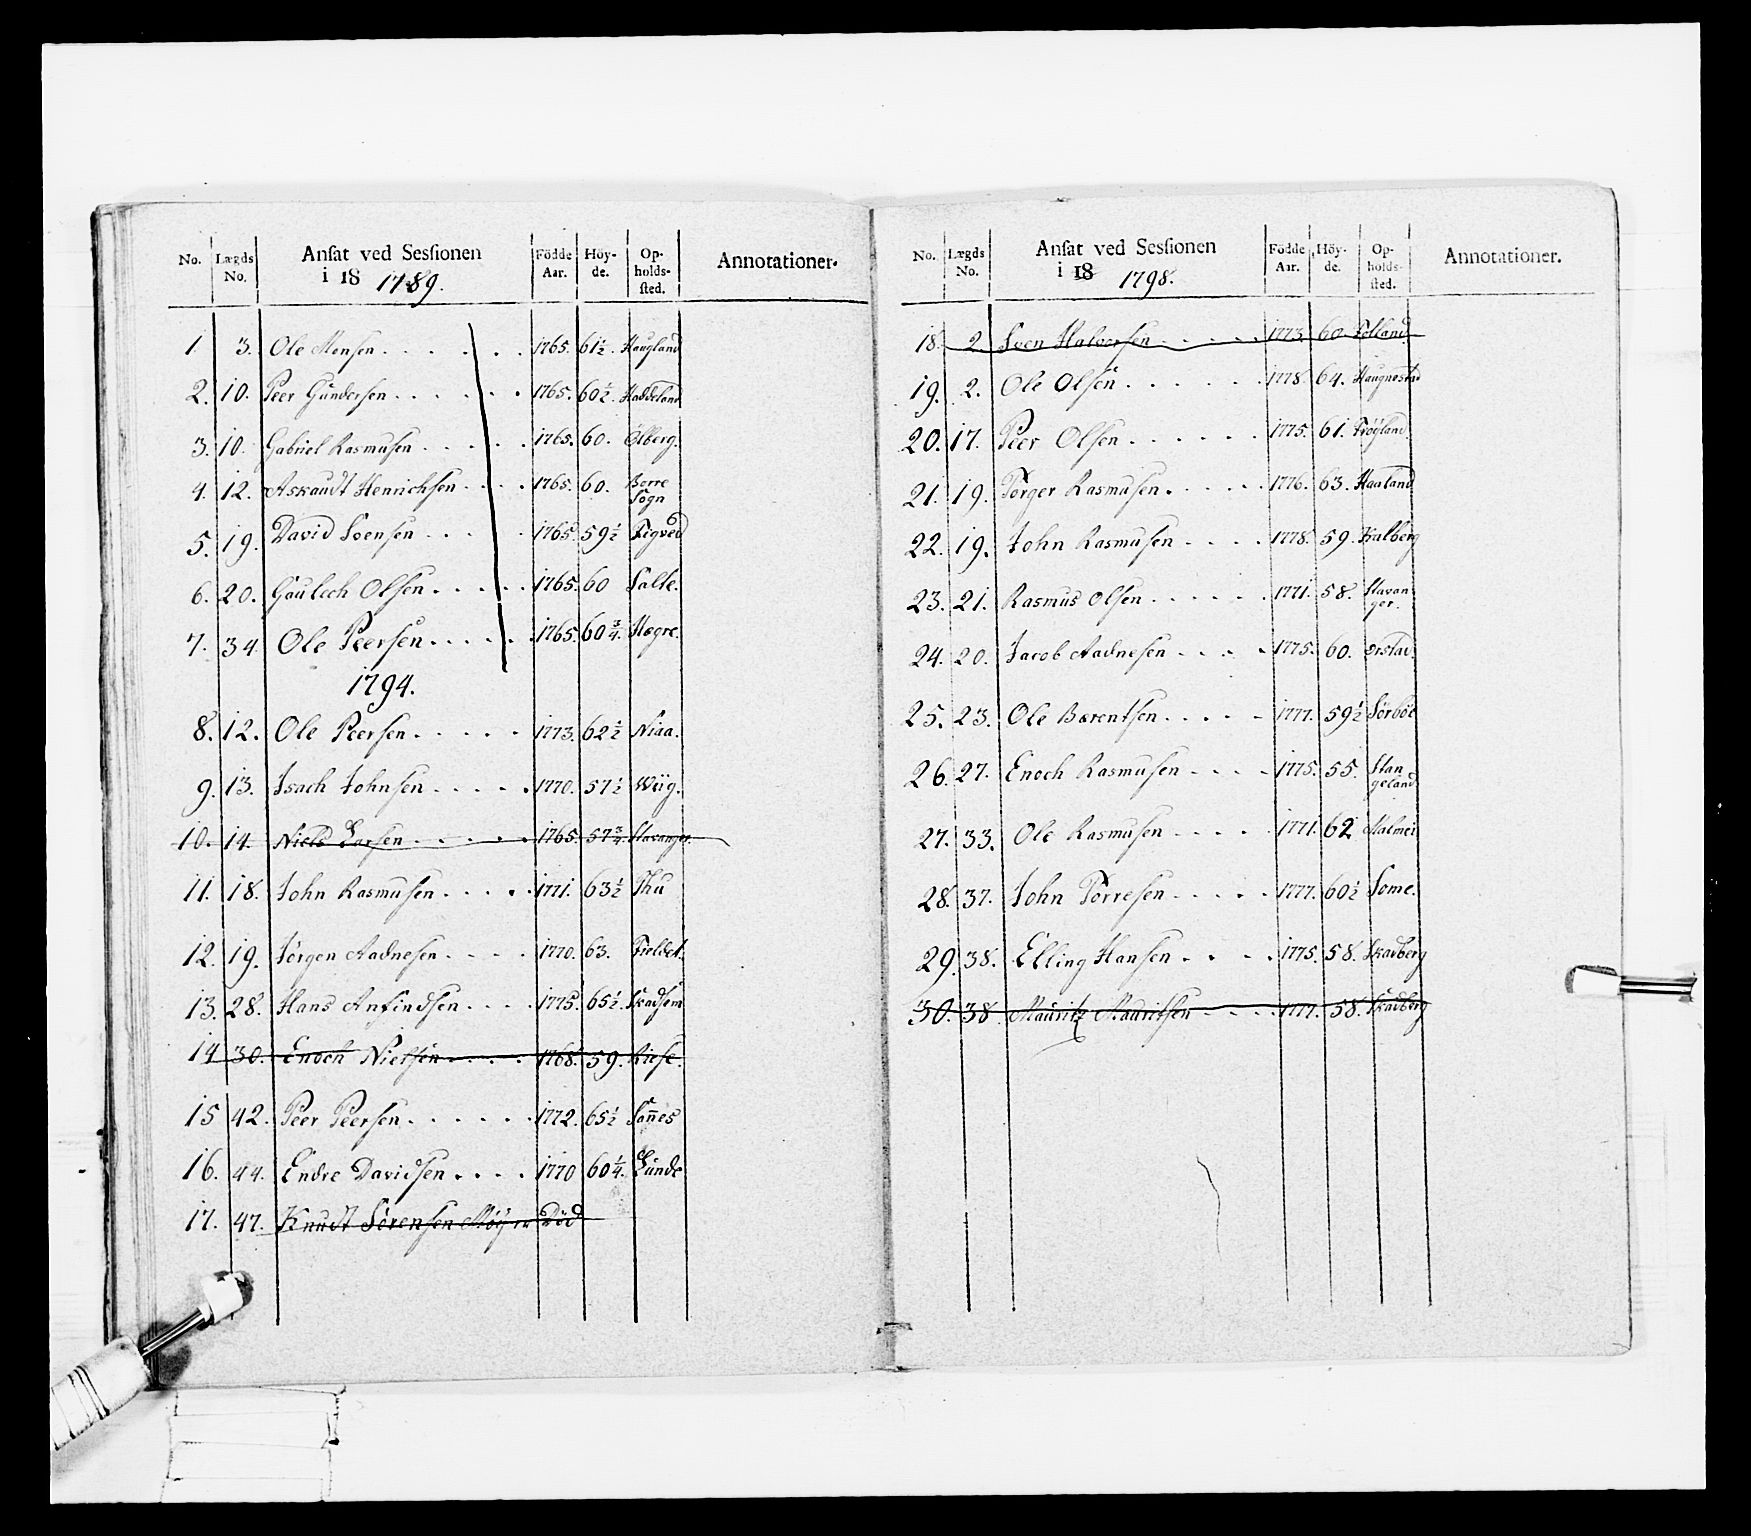 No. Lægds No. Ansat ved Sessionen i 18 1789. Födde Aar. Höyde. Opholdssted. Annotationer.
1. 3. Ole Monsen 1765. 61½. Haugland
2. 10. Peer Gundersen 1765. 60½. Haddeland
3. 10. Gabriel Rasmusen 1765. 60. Ölberg.
4. 12. Askaudt Henrichsen 1765. 60. Borre Sogn
5. 19. David Svensen 1765. 59½ Tegved
6. 20. Gaulech Olsen 1765. 60 Salte.
7. 34. Ole Peersen 1765. 60¾. Hegre.
1794.
8. 12. Ole Peersen 1773. 62½ Niaa.
9. 13. Isach Johnsen 1770. 57½ Wiig.
10. 14. Niels Larsen 1765. 57¾. Stavanger.
11. 18. John Rasmusen 1771. 63½ Thu
12. 19. Jörgen Aadnesen 1770. 63. Fieldet.
13. 28. Hans Anfindsen 1775. 65½. Skadsem
14 30. Enoch Nielsen 1768. 59. Riise.
15 42. Peer Peersen 1772. 65½ Sannes
16. 44. Endre Davidsen 1770 60¼. Lunde
17. 47. Knudt Sörensen Möger Död
No. Lægds No. Ansat ved Sessionen i 18 1798. Födde Aar. Höyde. Opholdssted. Annotationer.
18. 2. Sven Halvorsen 1773. 60 Folland.
19. 2. Ole Olsen 1778. 64. Haugnestad
20. 17. Peer Olsen 1775. 61. Fröyland.
21. 19. Torger Rasmusen 1776. 63. Haaland
22. 19. John Rasmusen 1778. 59. Kalberg
23. 21. Rasmus Olsen 1771. 58. Stavanger.
24. 20. Jacob Aadnesen 1775. 60. Orstad.
25. 23. Ole Bærentsen 1777. 59½ Sörböe
26. 27. Enoch Rasmusen 1775. 55. Stangeland
27. 33. Ole Rasmusen 1771. 62 Malmei
28. 37. John Torresen 1777. 60½ Some.
29. 38. Elling Hansen 1775. 58. Skadberg
30. 38. Mauritz Mauritsen 1777. 58. Skadberg